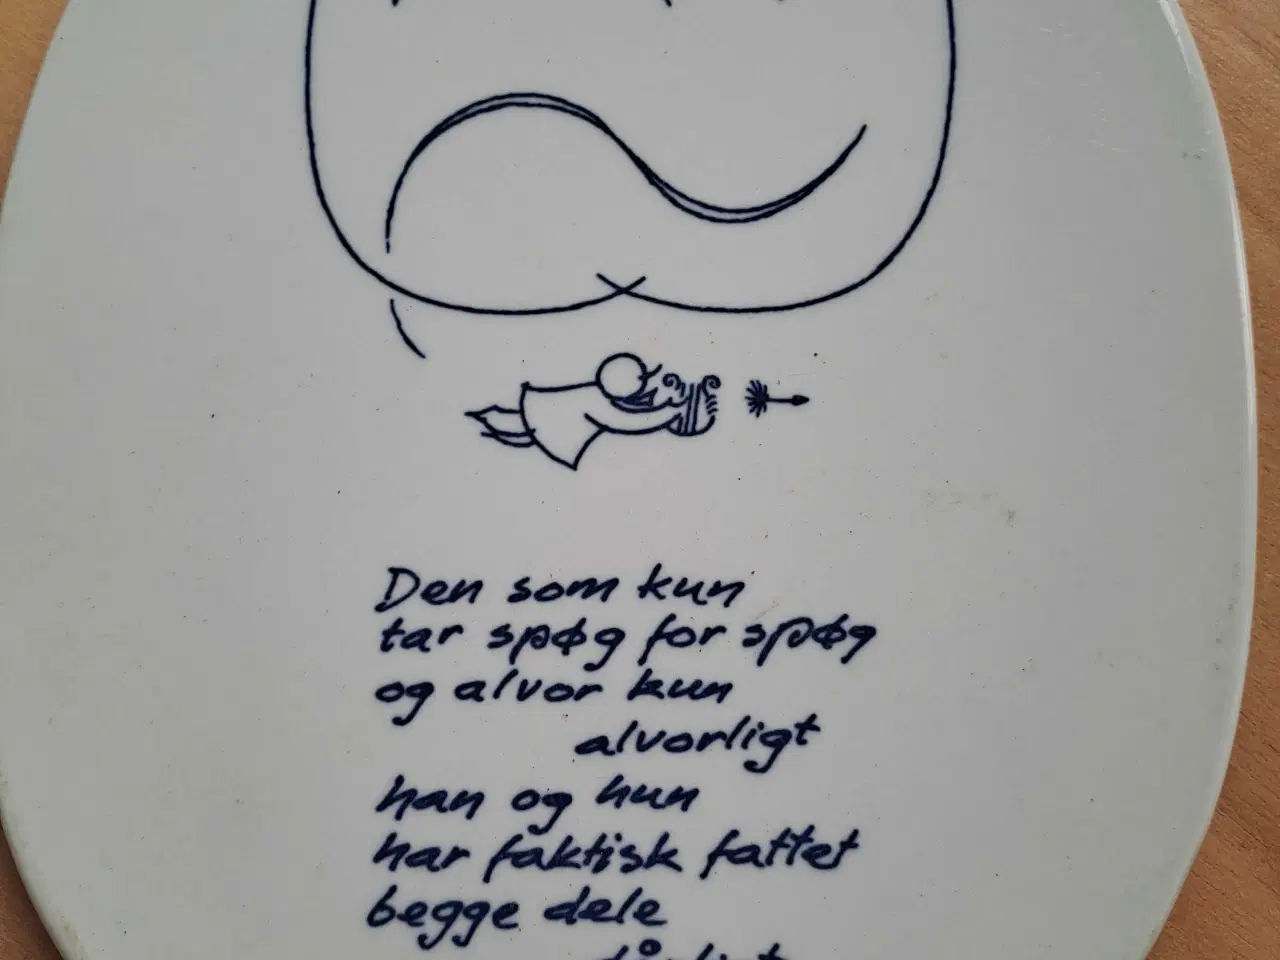 Den som kun
tar spøg for spøg
og alvor kun
alvorligt
han og hun
har faktisk fattet
begge dele